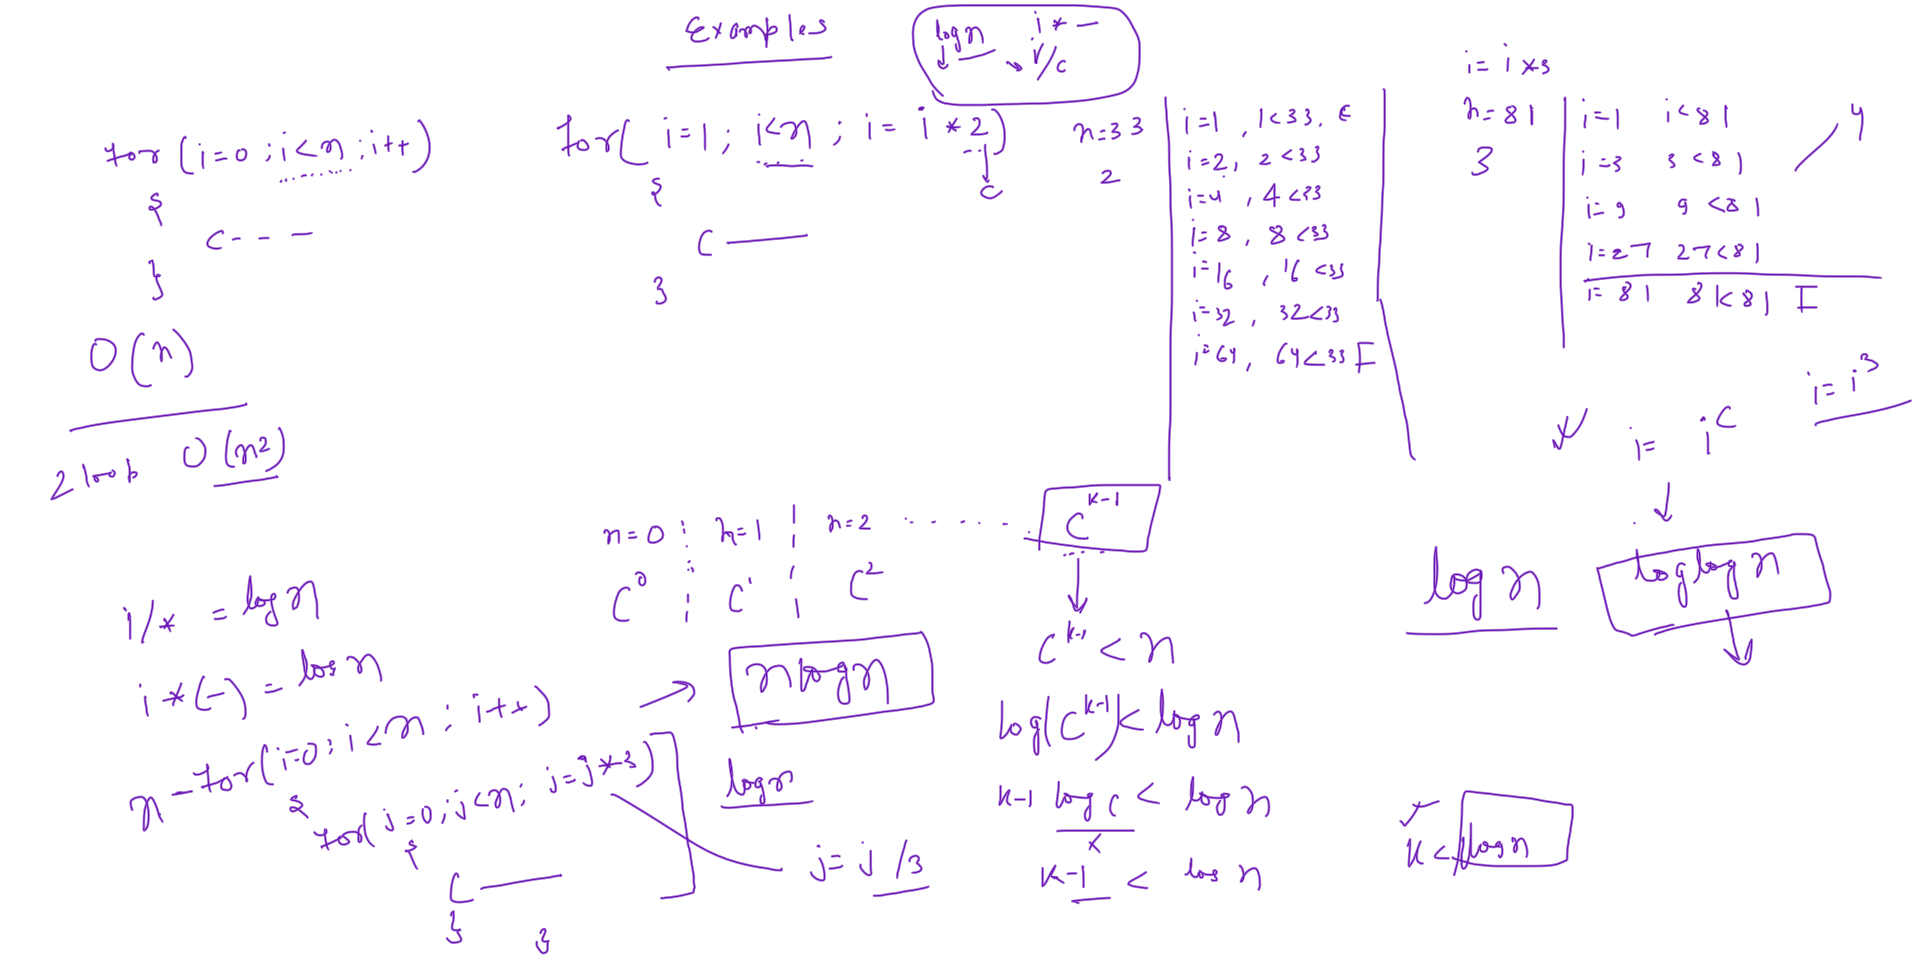 Examples
log n
i * —
i/c
for (i=0 ; i<n ; i++)
{
C - - -
}
O(n)
2 loop O(n²)
for( i=1 ; i<n ; i= i * 2)
{
c
C ——
}
n=33
2
i=1 , 1<33,
i=2, 2<33
i=4 , 4<33
i=8 , 8<33
i=16 , 16<33
i=32 , 32<33
i=64, 64<33 F
i= i x3
n=81
3
i=1 i<81
i=3 3<81
i=9 9<81
i=27 27<81
i=81 81<81 F
4
i= i³
i= i^c
log n
log log n
n=0 n=1 n=2 ...... C^k-1
C⁰ C¹ C²
C^k-1 < n
log(C^k-1)< log n
k-1 log c < log n
k-1 < log n
k < log n
i/* = log n
i*(-) = log n
n - for(i=0; i<n ; i++)
{
for(j=0; j<n; j=j*3)
{
C ——
}
}
n log n
log n
j= j /3